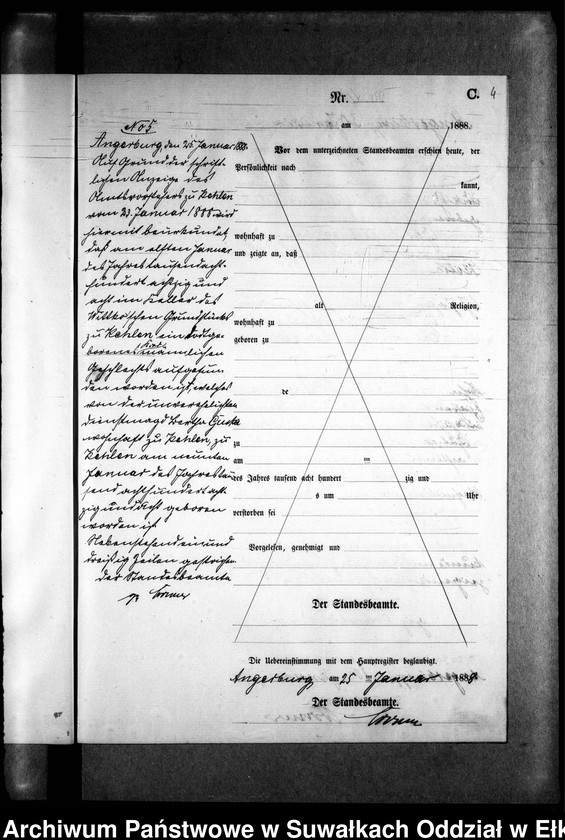 Nr. C. 4
No 5
am 1888.
Angerburg, den 25. Januar 1888.
Auf Grund der schrift-
lichen Anzeige des
Amtsvorstehers zu Kehlen
vom 23. Januar 1888 wird
hiermit beurkundet,
daß am elften Januar
des Jahres tausend acht-
hundert achtzig und
acht im Keller des
Wittko'schen Grundstücks
zu Kehlen ein todtge-
borenes Kind männlichen
Geschlechts aufgefun-
den worden ist, welches
von der unverehelichten
Dienstmagd Bertha
wohnhaft zu Kehlen, zu
Kehlen am neunten
Januar des Jahres tau-
send achthundert acht-
zig und acht geboren
worden ist
Nebenstehend ein und
dreißig Zeilen gestrichen
Der Standesbeamte
Vor dem unterzeichneten Standesbeamten erschien heute, der
Persönlichkeit nach
kannt,
wohnhaft zu
und zeigte an, daß
alt Religion,
wohnhaft zu
geboren zu
de
zu
am ten
des Jahres tausend acht hundert zig und
s um Uhr
verstorben sei
Vorgelesen, genehmigt und
Der Standesbeamte.
Die Uebereinstimmung mit dem Hauptregister beglaubigt.
Angerburg am 25 ten Januar 1888
Der Standesbeamte.
Archiwum Państwowe w Suwałkach Oddział w Ełk